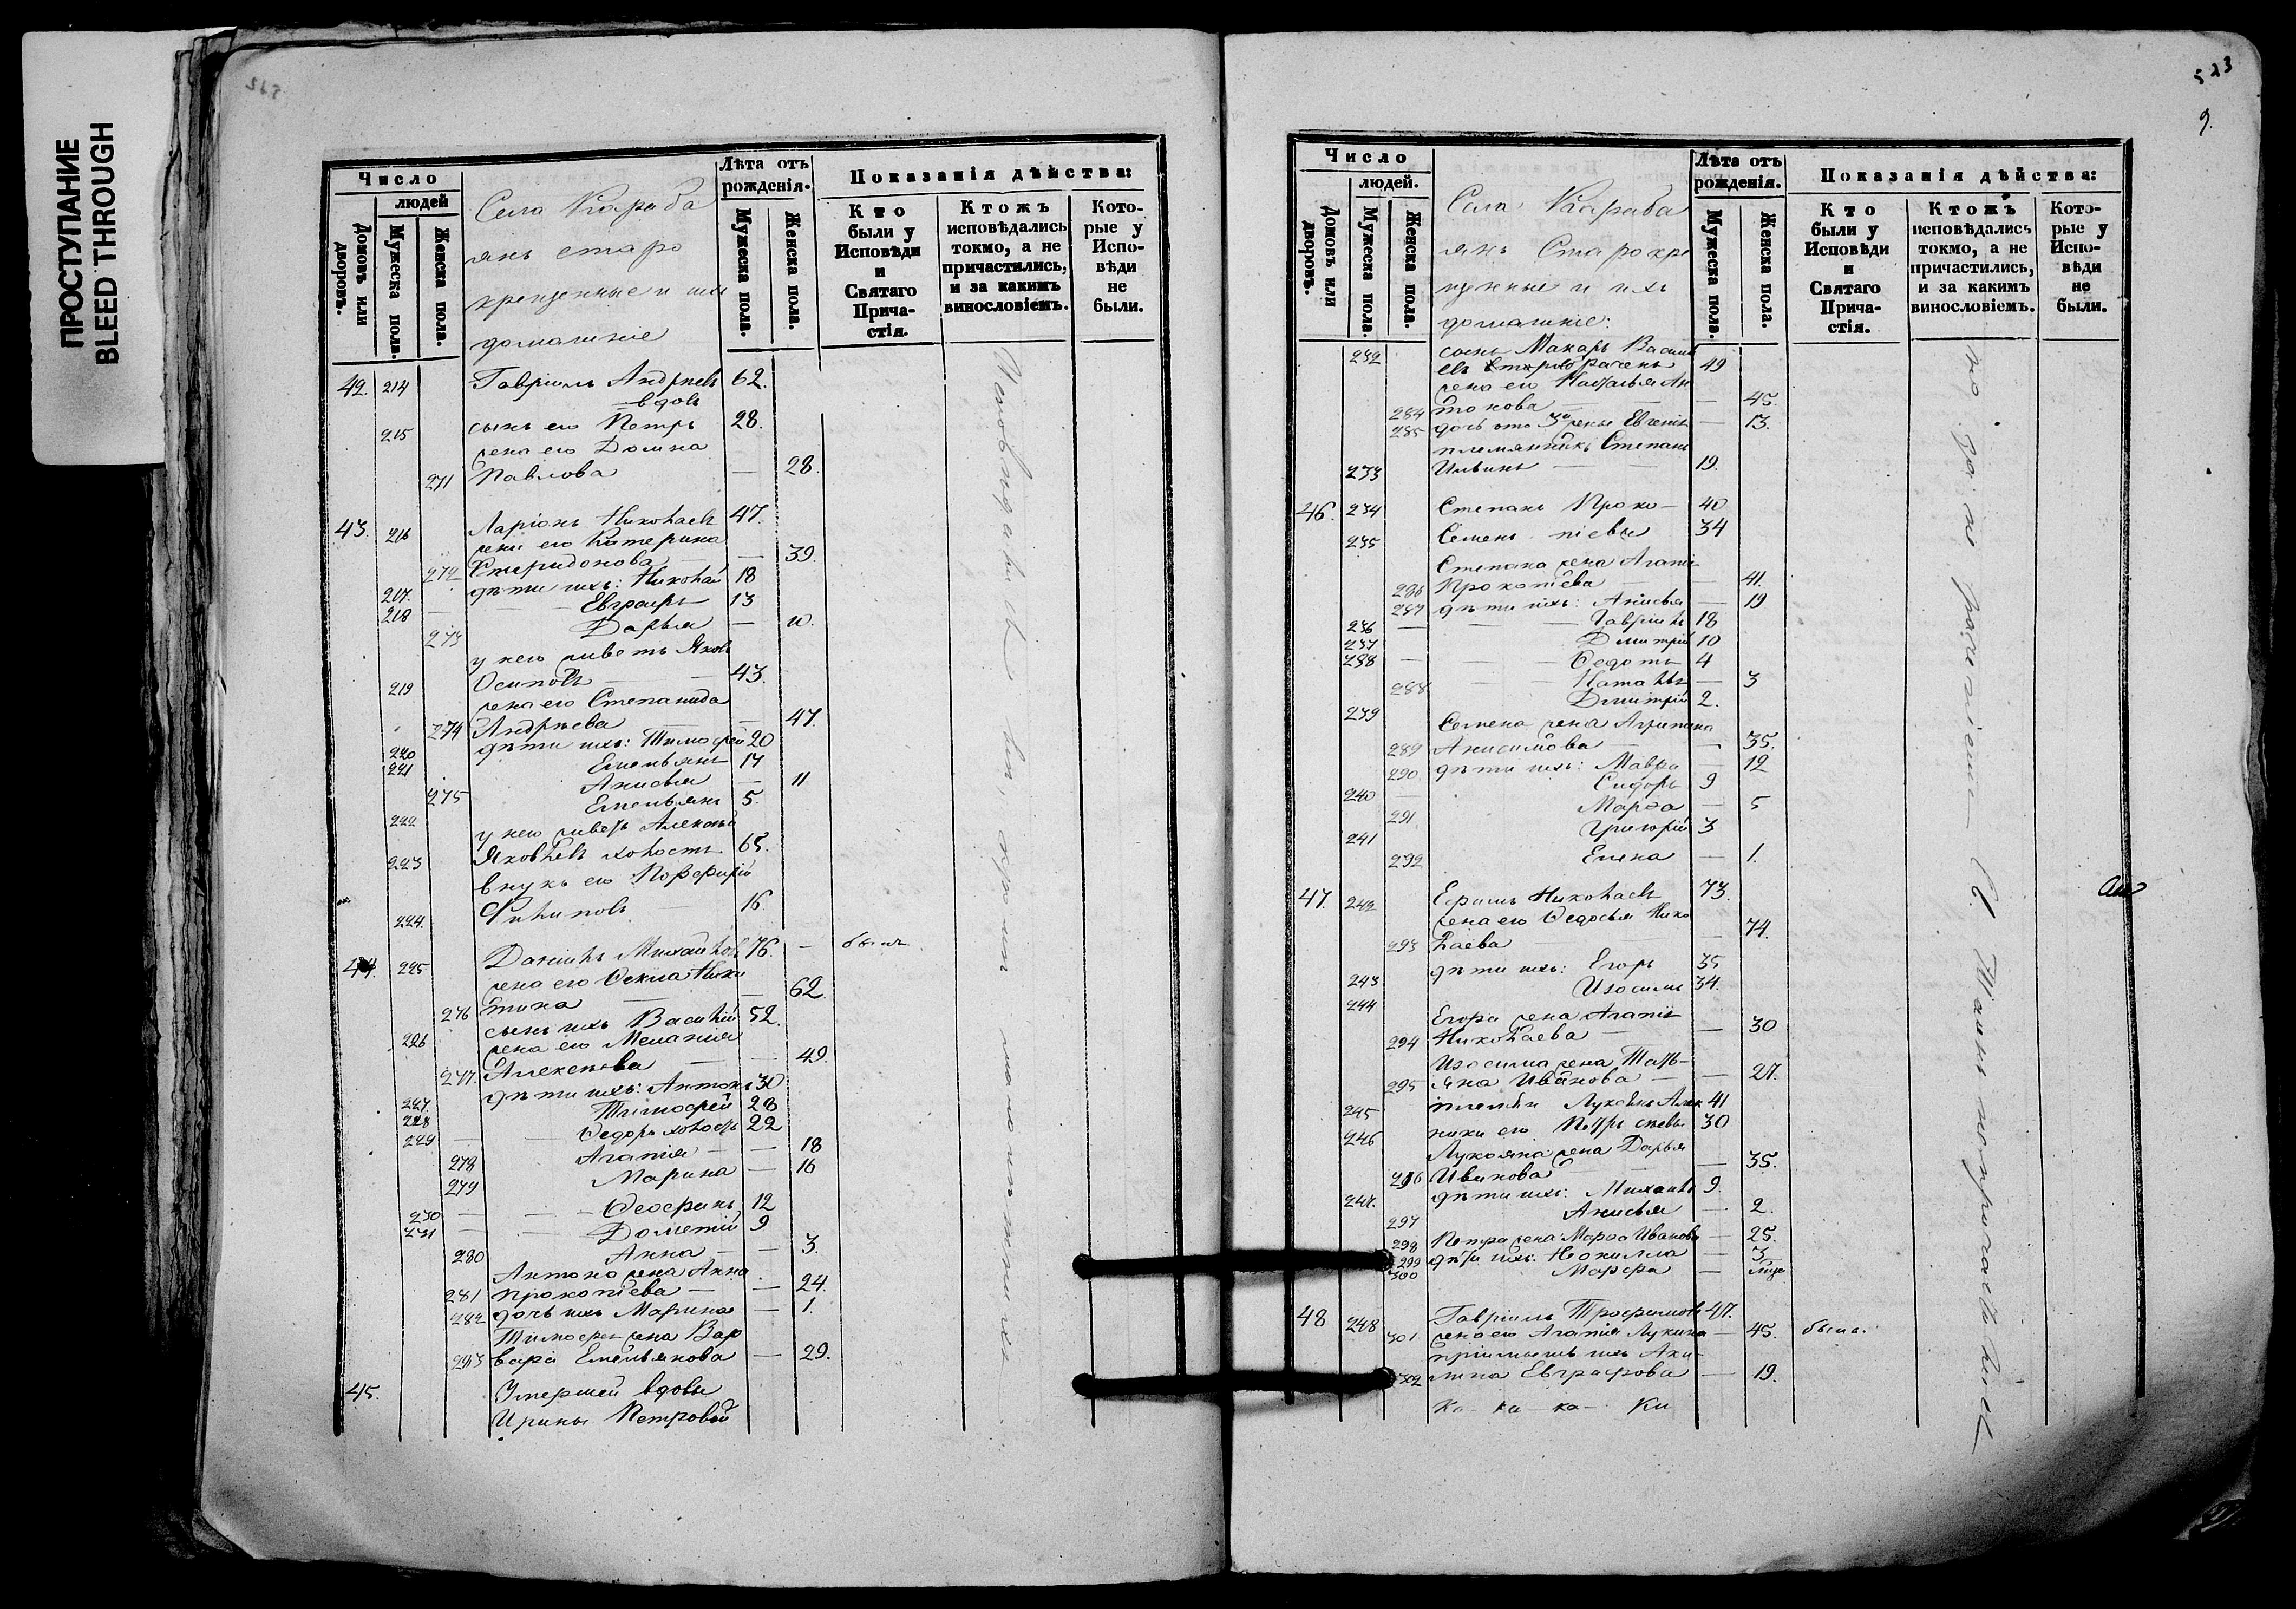 ПРОСТУПАНИЕ
BLEED THROUGH
Число
людей
Домовъ или дворовъ.
Мужеска пола.
Женска пола.
Села Караба
янъ старо
крещенные и ихъ
домашніе
Лѣта отъ рожденія.
Мужеска пола.
Женска пола.
Показанія дѣйства:
Кто были у Исповѣди и Святаго Прича-стія.
Ктожъ исповѣдались токмо, а не причастились, и за какимъ винословіемъ.
Кото-рые у Испо-вѣди не были.
42. 214 Гавріилъ Андреевъ 62.
вдовъ
215 сынъ его Петръ 28.
жена его Домна
271 Павлова — 28.
43. 216 Ларіонъ Николаевъ 47.
жена его Катерина
272 Спиридонова — 39.
217. дѣти ихъ: Николай 18
218 Евграфъ 13
273 Дарья — 10.
у него живетъ Яковъ
219 Осиповъ — 43.
жена его Степанида
274 Андреева — 47.
220 дѣти ихъ: Тимофей 20
221 Емельянъ 17
275 Анисья — 11
222 Емельянъ 5.
у него живетъ Алексѣй
223 Яковлевъ холостъ 65.
внукъ его Порфирій
224. Филиповъ — 16
44. 225 Даніилъ Михайлов 76. — былъ.
жена его Ѳекла Ники
276 тина — 62.
226 сынъ ихъ Василій 52.
жена его Меланія
277. Алексеева — 49.
227. дѣти ихъ: Антонъ 30
228 Тимофей 28
229 Ѳедоръ холостъ 22
278 Агапія — 18
279 Марина — 16
230 Ѳеофанъ 12
231 Дометій 9
280 Анна — 3.
Антона жена Анна
281 Прокопіева — 24.
282 дочь ихъ Марина — 1.
Тимофея жена Вар
283 вара Емельянова — 29.
45. Умершей вдовы
Ирины Петровой
523
9.
Число
людей.
Домовъ или дворовъ.
Мужеска пола.
Женска пола.
Села Караба
янъ Старокре
щенные и ихъ
домашніе:
Лѣта отъ рожденія.
Мужеска пола.
Женска пола.
Показанія дѣйства:
Кто были у Исповѣди и Святаго Прича-стія.
Ктожъ исповѣдались токмо, а не причастились, и за какимъ винословіемъ.
Кото-рые у Испо-вѣди не были.
232 сынъ Макаръ Василь
евъ второбраченъ 49
жена его Наталья Ан
284 тонова — 45.
285 дочь ото 3й жены Евгенія — 13.
племянникъ Степанъ
233 Ильинъ — 19.
46. 234 Степанъ Проко- 40
235 Семенъ піевы 34
Степана жена Агапія
286 Прокопіева — 41.
287 дѣти ихъ: Анисья — 19
236 Гавріилъ 18
237 Дмитрій 10
238 Ѳедотъ 4
288 Наталья — 3
239 Дмитрій 2.
Семена жена Агрипина
289 Анисимова — 35.
290 дѣти ихъ: Мавра — 12
240 Сидоръ 9
291 Марѳа — 5
241 Григорій 3
292 Елена — 1.
47. 242 Ефимъ Николаевъ 73.
жена его Ѳедосья Нико
293 лаева — 74.
243 дѣти ихъ: Егоръ 35
244 Изосимъ 34.
Егора жена Агапія
294 Николаева — 30
Изосима жена Тать-
295 яна Иванова — 27.
245 племян Лукоянъ Алек 41
246 ники его Петръ сѣевы 30
Лукояна жена Дарья
296 Иванова — 35.
247. дѣти ихъ: Михаилъ 9.
297 Анисья — 2.
298 Петра жена Марѳа Иванова — 25.
299 дѣти ихъ: Неонилла — 3
300 Марфа —
48 248 Гавріилъ Трофимовъ 47.
301 жена его Агапія Лукина — 45. была.
пріимышъ ихъ Аку-
302 лина Евграфова — 19.